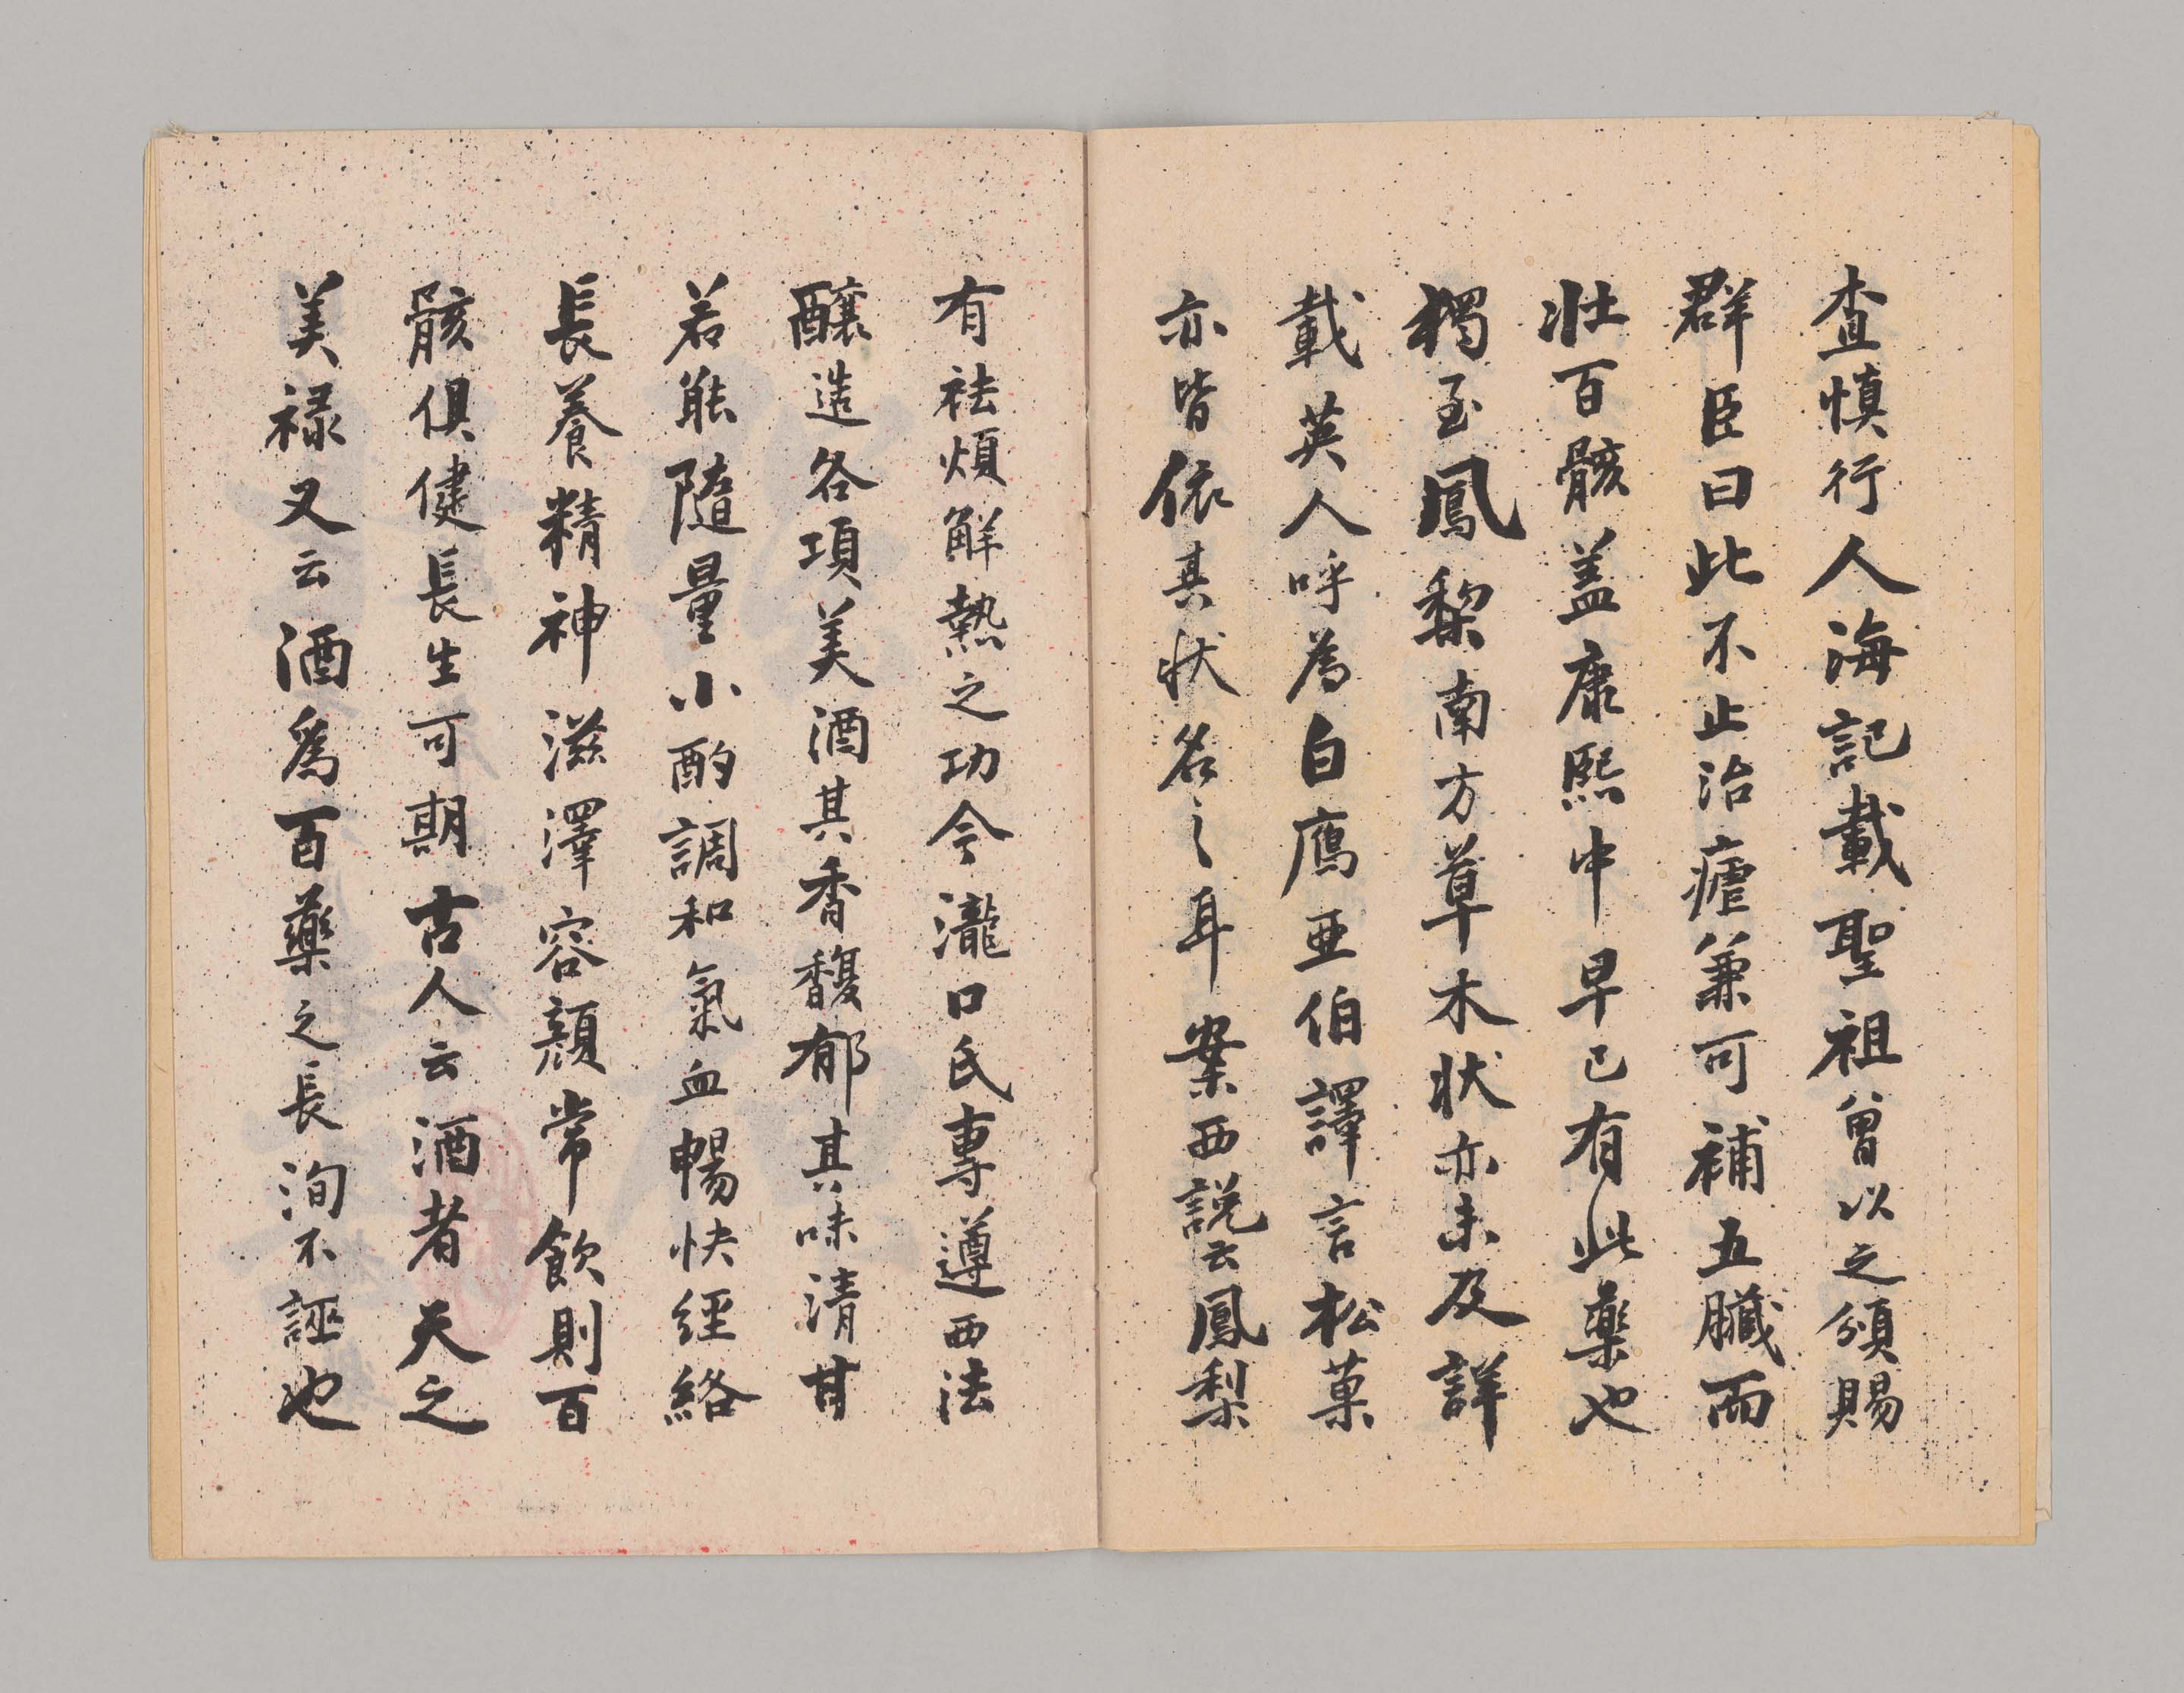 查慎行人海記載聖祖曾以之頒賜
群臣曰此不止治瘧兼可補五臟而
壯百骸盖康熙中早已有此藥也
獨至鳳梨南方草木狀亦未及詳
載英人呼為白鴈亜伯譯言松菓
亦皆依其狀名之耳案西説云鳳梨
有祛煩解熱之功今瀧口氏専遵西法
釀造各項美酒其香馥郁其味清甘
若能隨量小酌調和氣血暢快經絡
長養精神滋澤容顔常飲則百
骸俱健長生可期古人云酒者天之
美禄又云酒為百藥之長洵不誣也